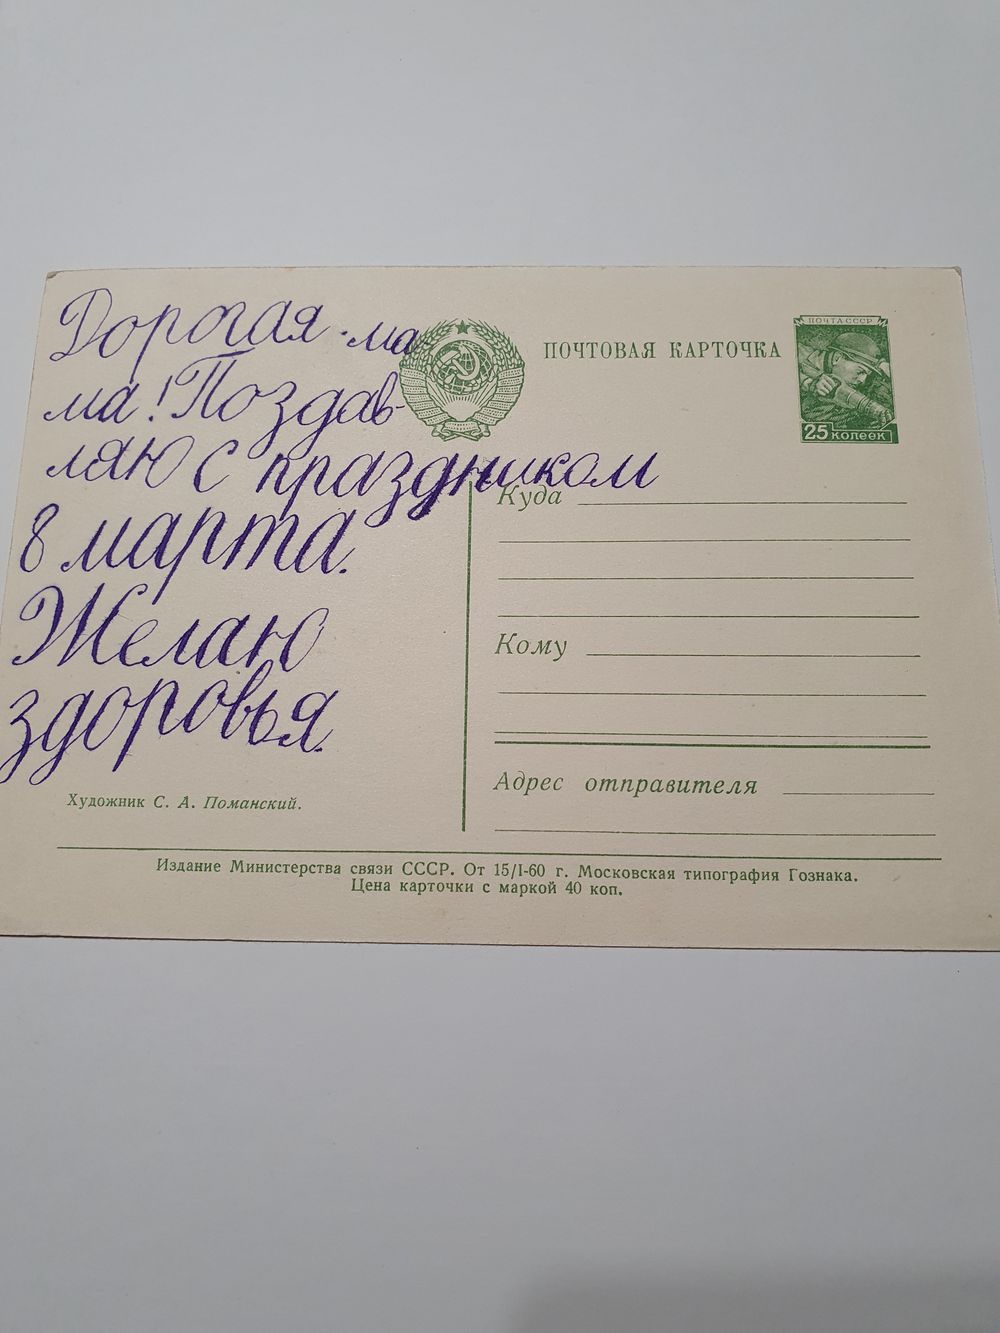 Дорогая ма-
ма! Поздав-
ляю с праздником
8 марта.
Желаю
здоровья.
Художник С. А. Поманский.
ПОЧТОВАЯ КАРТОЧКА
ПОЧТА СССР
25 копеек
Куда
Кому
Адрес отправителя
Издание Министерства связи СССР. От 15/I-60 г. Московская типография Гознака.
Цена карточки с маркой 40 коп.